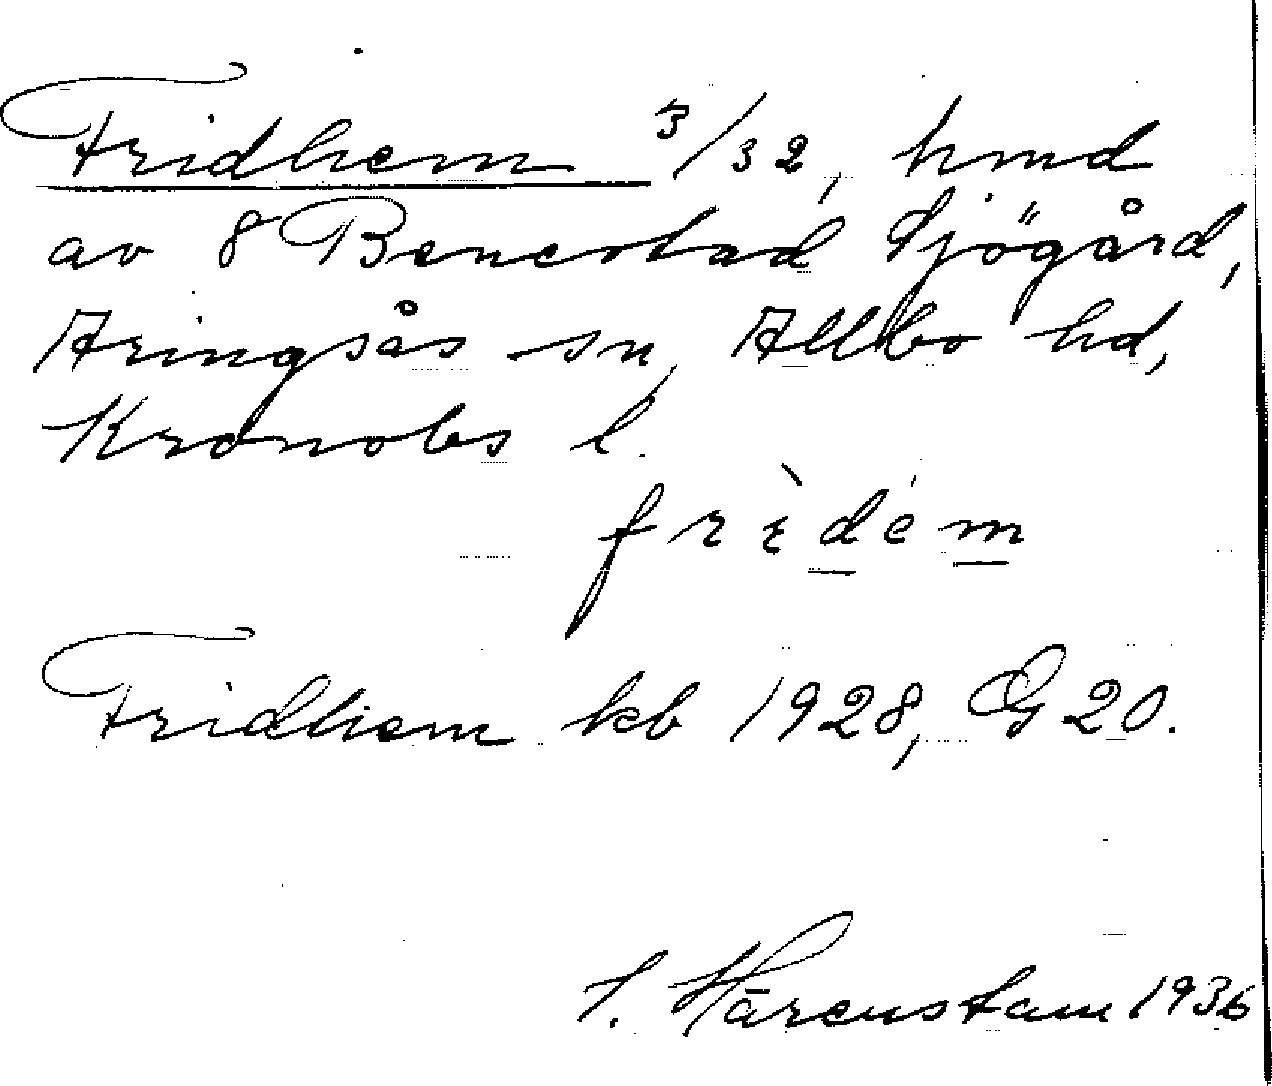 Fridhem 3/32, hmd
av 8 Benestad Sjögård,
Aringsås sn, Allbo hd,
Kronobs l.
frìdém
Fridhem kb 1928, G 20.
S. Hårenstam 1936